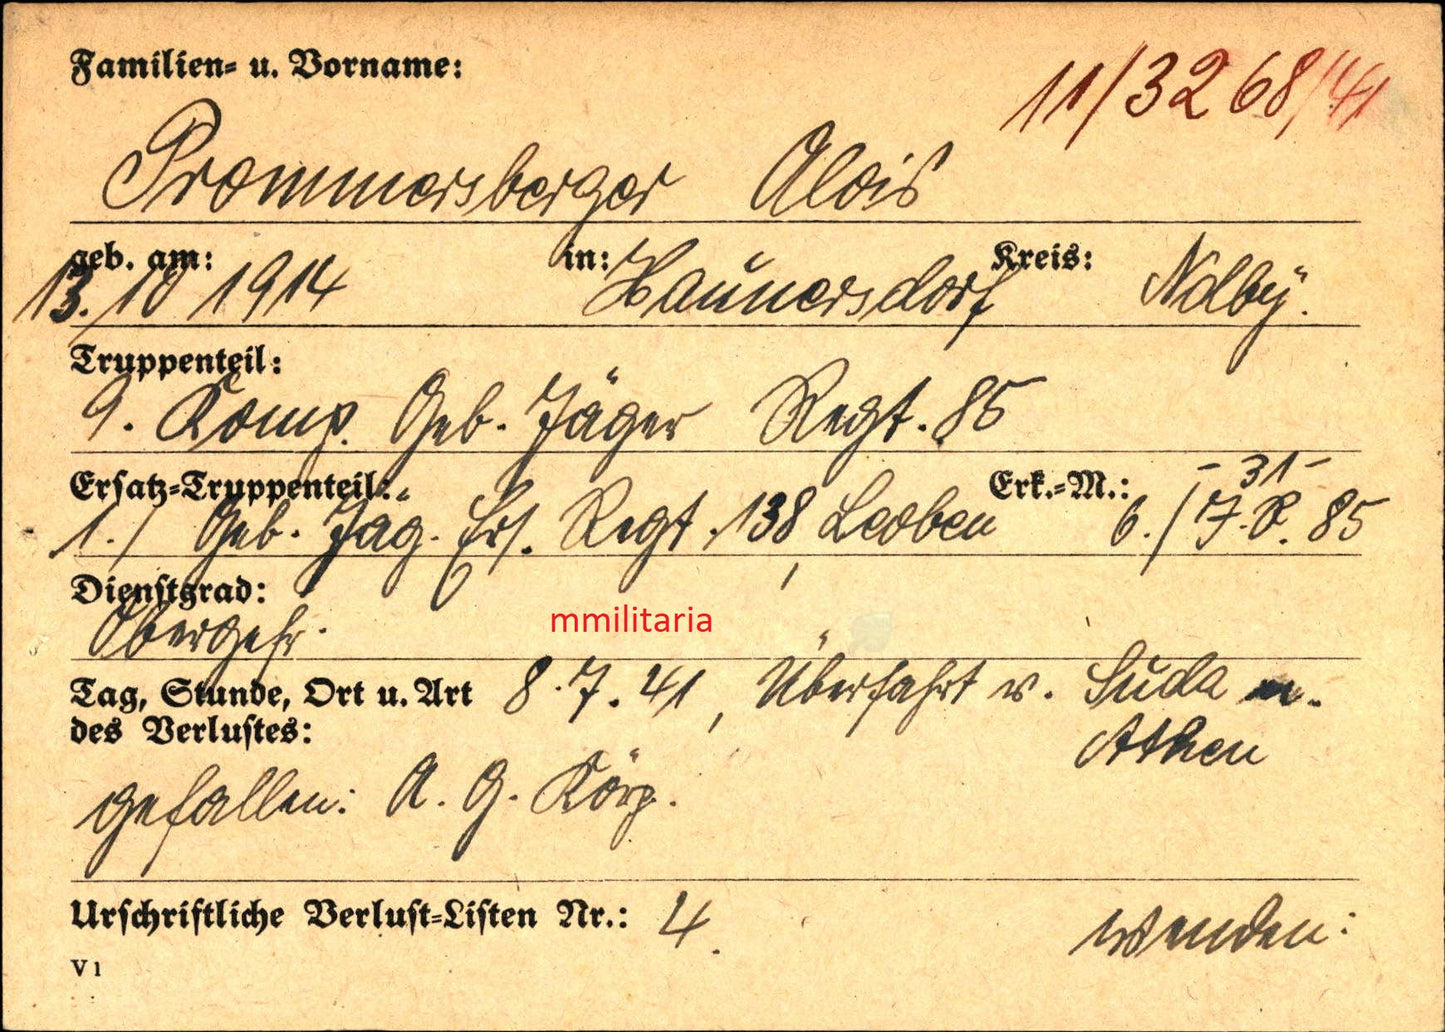 Familien- u. Vorname:
11/3268/41
Prommersberger Alois
geb. am: in: Kreis:
13. 10 1914 Haunersdorf Ndby.
Truppenteil:
9. Komp. Geb. Jäger Regt. 85
Ersatz-Truppenteil: Erk.-M.: -31-
1./ Geb. Jäg. Ers. Regt. 138, Leoben 6./ J.R. 85
Dienstgrad:
Obergefr.
mmilitaria
Tag, Stunde, Ort u. Art 8.7.41, Überfahrt v. Suda n.
des Verlustes: Athen
gefallen: A. G. Körp.
Urschriftliche Verlust-Listen Nr.: 4. wenden:
V1